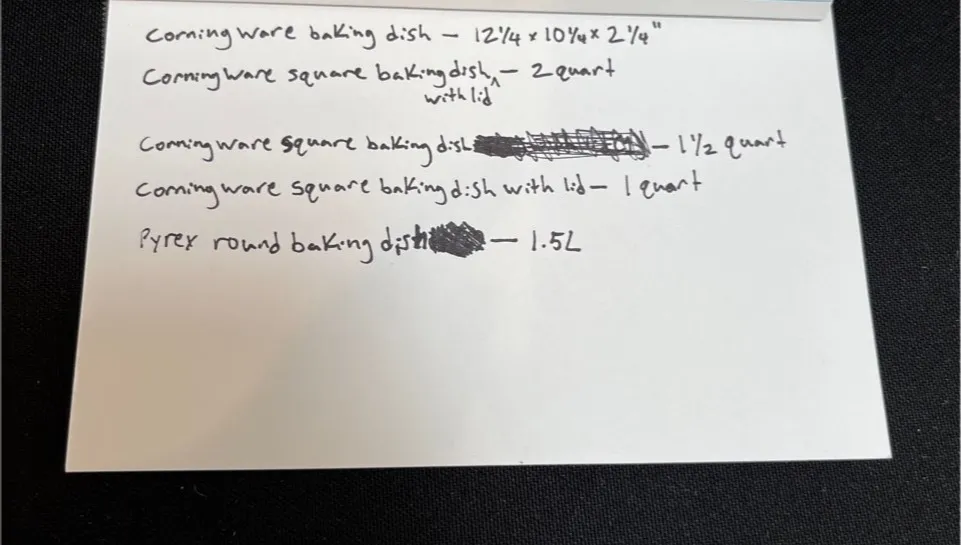 Corningware baking dish – 12 1/4 x 10 1/4 x 2 1/4"
Corningware square baking dish with lid – 2 quart
Corningware square baking dish – 1 1/2 quart
Corningware square baking dish with lid – 1 quart
Pyrex round baking dish – 1.5L